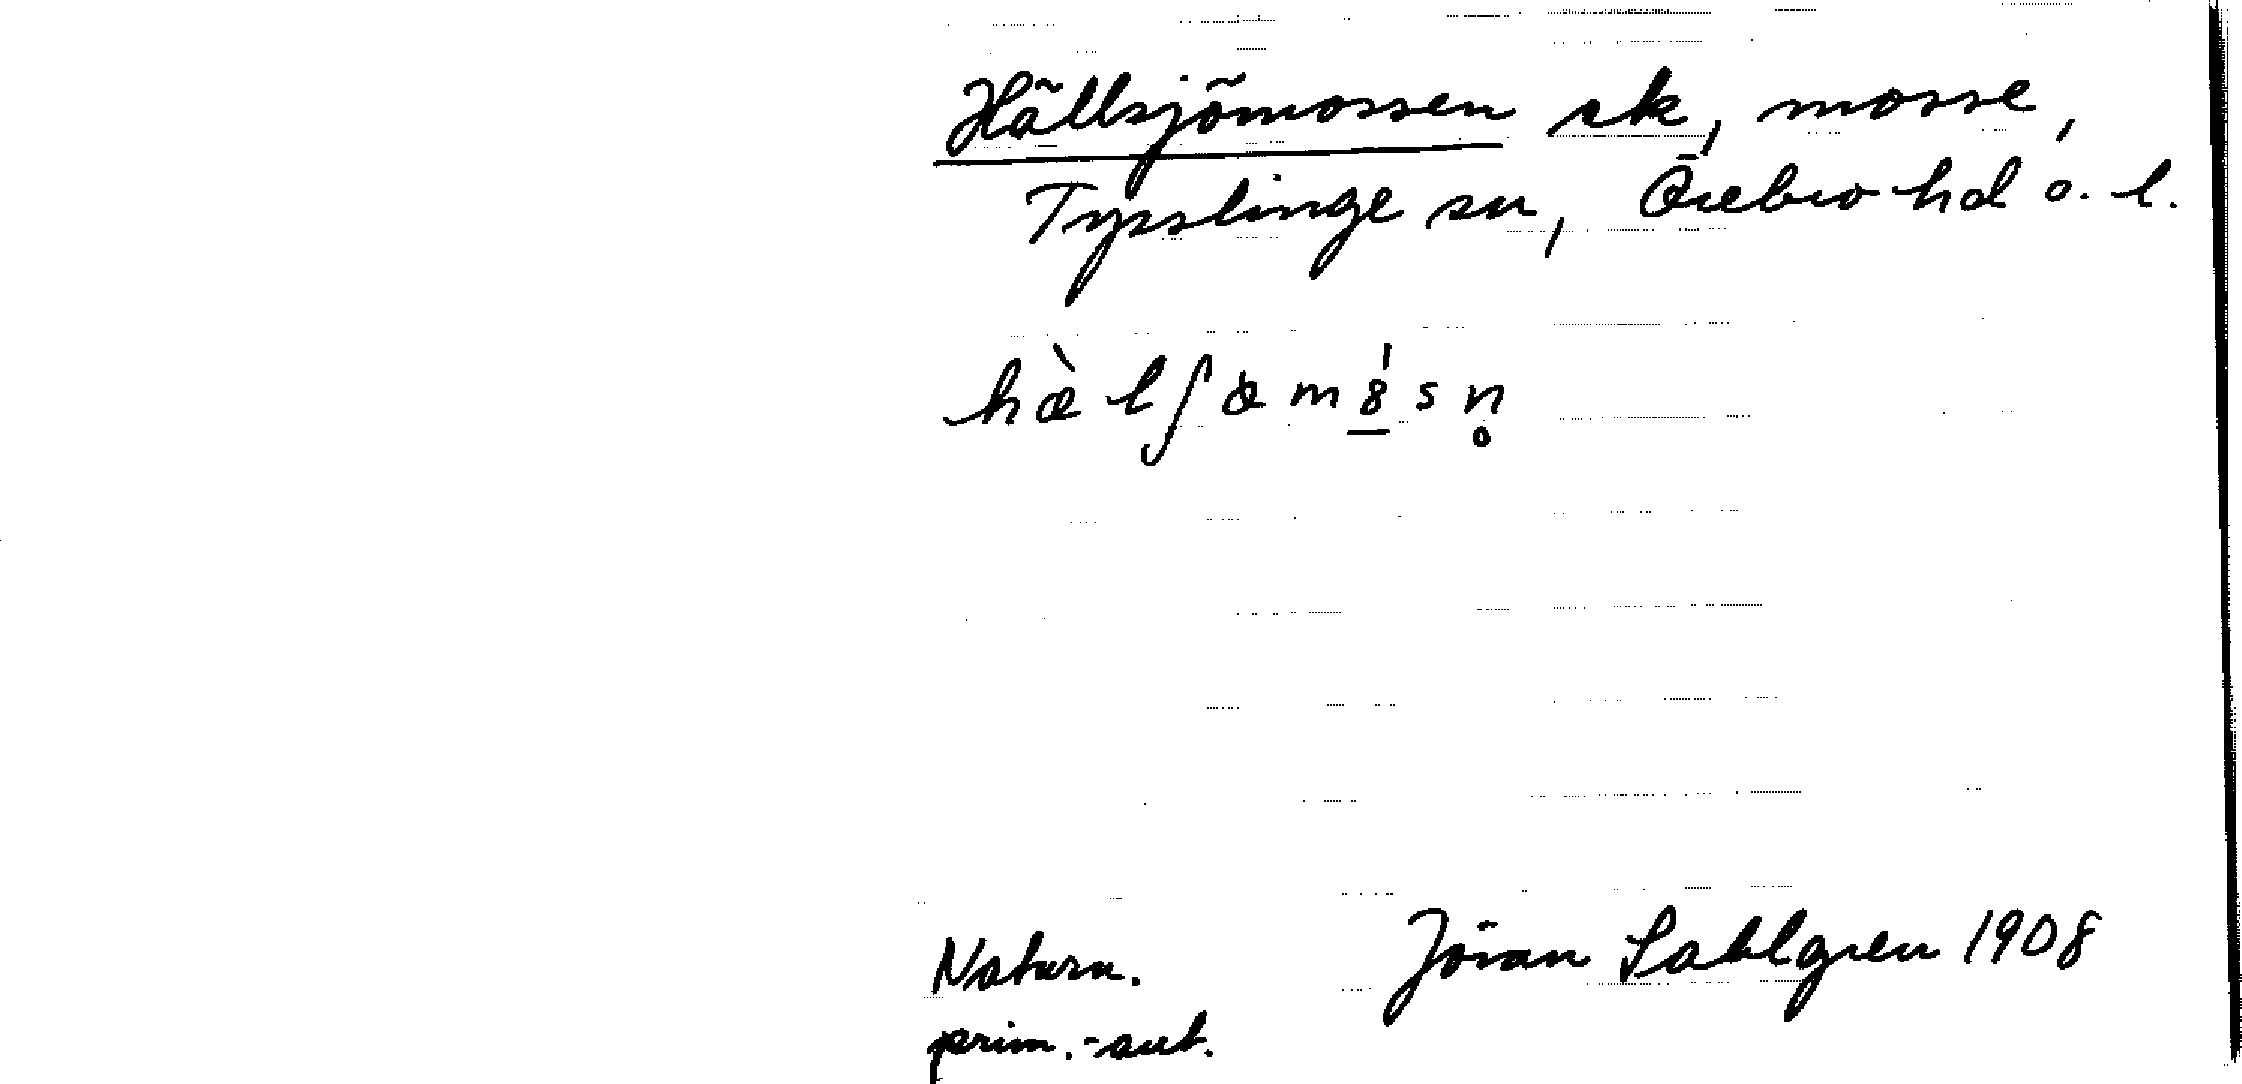 Hällsjömossen sk, mosse,
Tysslinge sn, Örebro hd ö. l.
hæ̀lʃömȣ́sn̥
Naturn. Jöran Sahlgren 1908
prim.-aut.